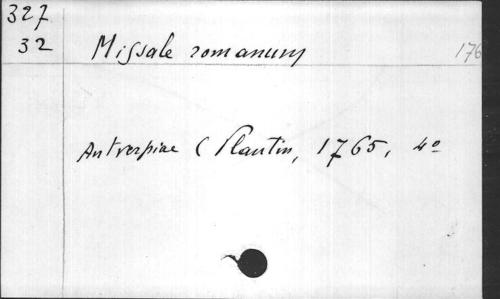 327
32 Missale romanum 176
Antverpiae ( Plantin, 1765, 4º